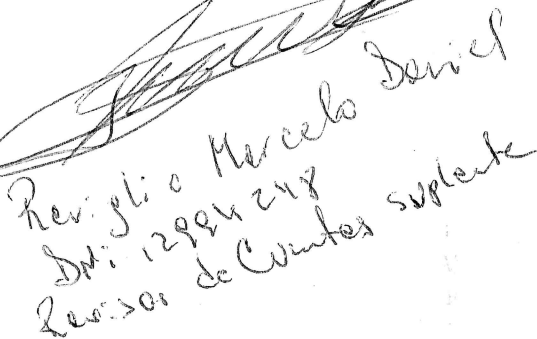 Reviglio Marcelo Daniel
DNI 12994248
Revisor de Cuentas suplente